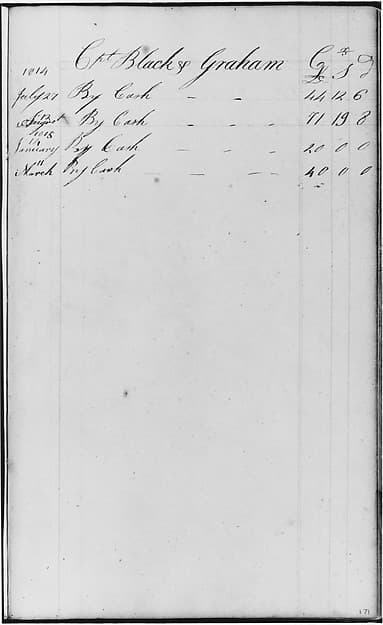 Black & Graham Cr
1814 £ S D
July 27 By Cash - - 44 12 6
August By Cash - - - 71 19 8
1815
January By Cash - - - 20 0 0
March By Cash - - - 40 0 0
171